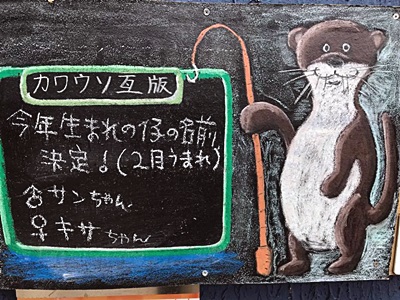 カワウソ互版
今年生まれの仔の名前
決定！(2月うまれ)
♂サンちゃん
♀キサちゃん